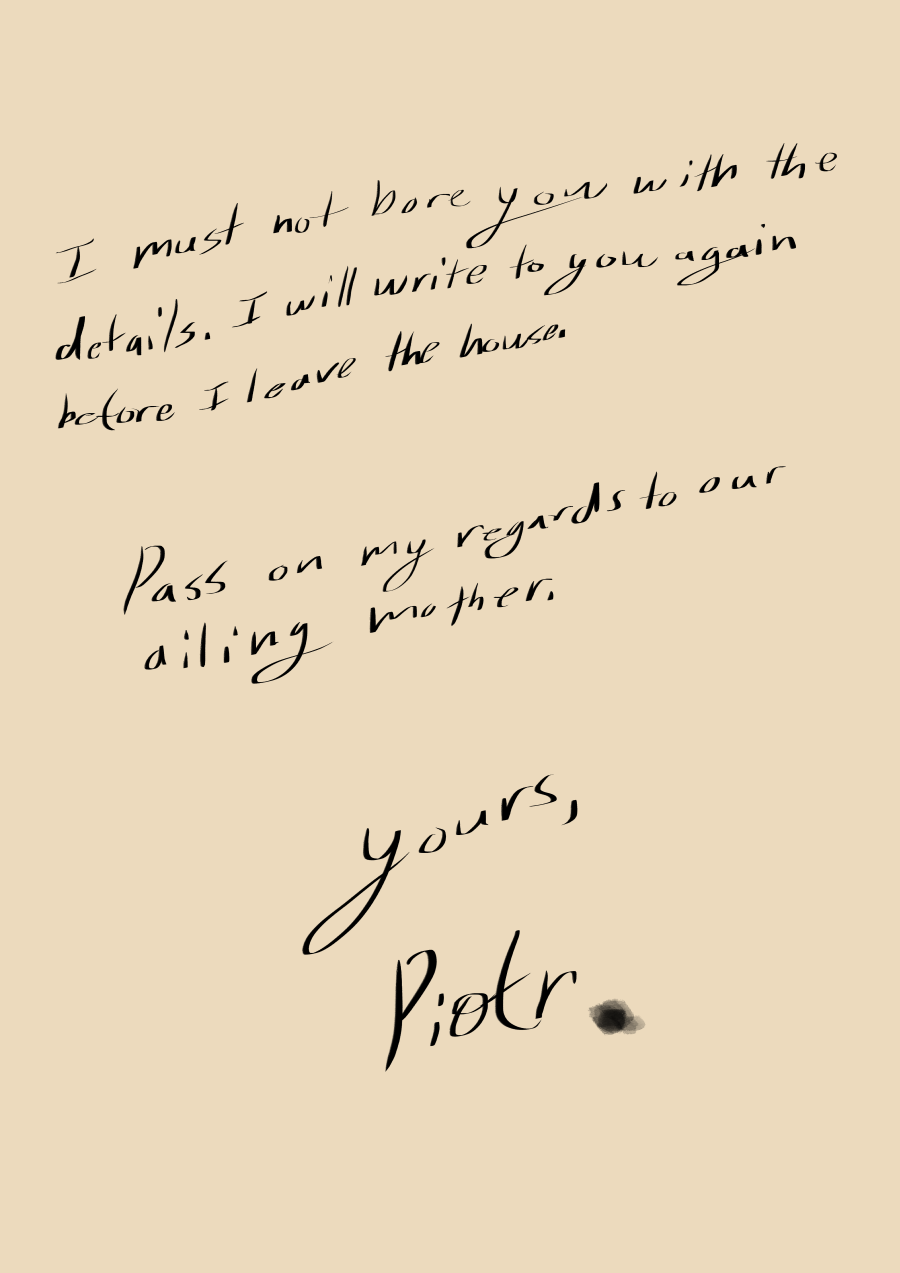 I must not bore you with the
details. I will write to you again
before I leave the house.
Pass on my regards to our
ailing mother.
yours,
Piotr.